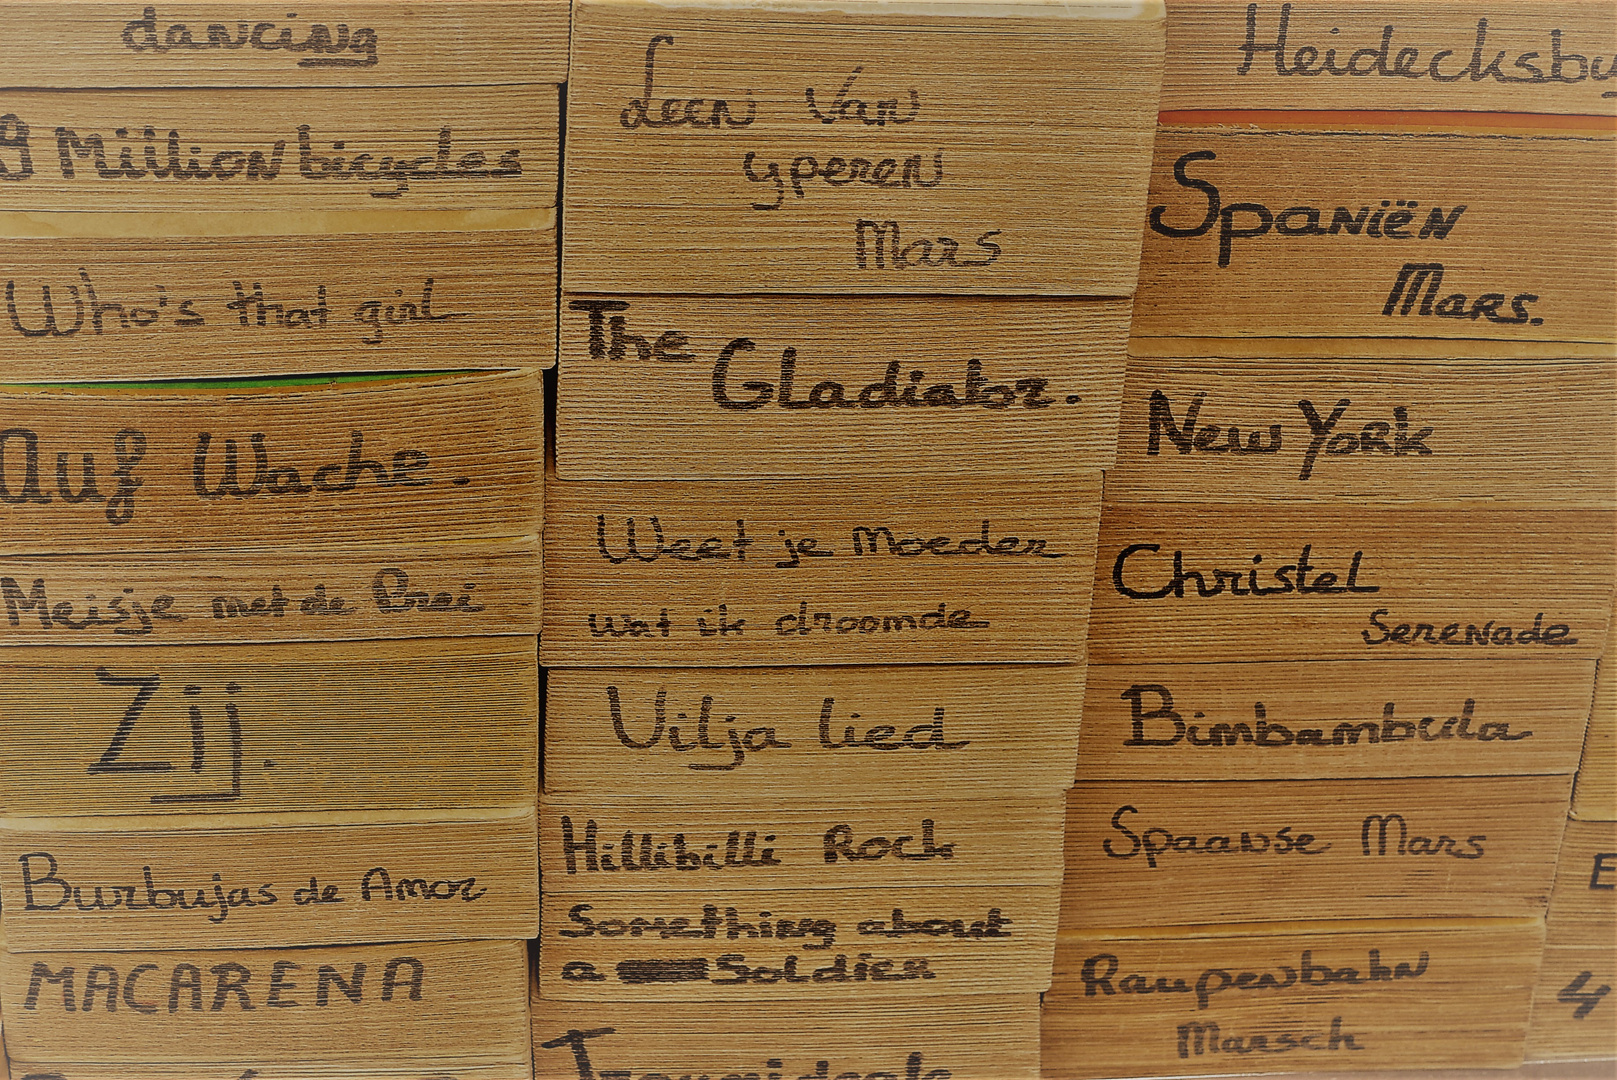 dancing
9 Million bicycles
Who's that girl
Auf Wache.
Meisje met de Prei
Zij.
Burbujas de Amor
MACARENA
Leen Van
yperen
Mars
The Gladiator.
Weet je Moeder
wat ik droomde
Vilja lied
Hillibilli Rock
Something about
a Soldier
Heidecksbu
Spaniën
Mars.
New York
Christel
Serenade
Bimbambula
Spaanse Mars
Raupenbahn
Marsch
E
4